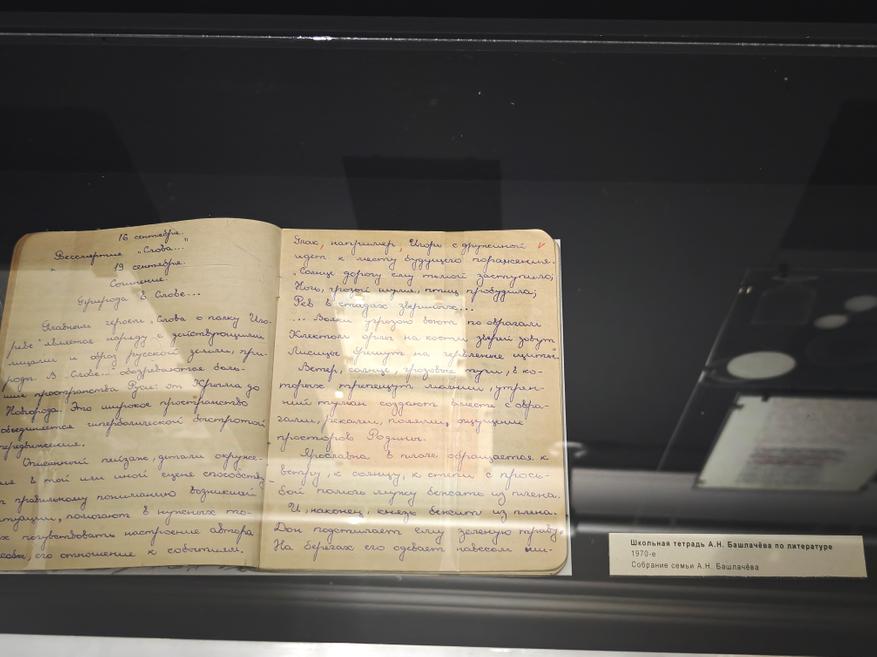 16 сентября.
Бессмертие „Слова..."
19 сентября.
Сочинение.
Природа в Слове...
Главным героем „Слова о полку Иго-
реве" является наряду с действующими
лицами и образ русской земли, при-
роды. В „Слове..." обозреваются боль-
шие пространства Руси: от Крыма до
Новгорода. Это широкое пространство
объединяется гиперболической быстротой
передвижения.
Описанный пейзаж, детали окруже-
ния в той или иной сцене способству-
т правильному пониманию возникшей
итуации, помогают в нужных то-
х почувствовать настроение автора
его отношение к событиям.
Так, например, Игорь с дружиной
идет к месту будущего поражения.
„Солнце дорогу ему тьмой заступило;
Ночь, грозой шумя, птиц пробудила;
Рев в стадах звериных...
... Волки угрозою воют по оврагам
Клектом орлы на кости зверей зовут
Лисицы брешут на червленые щиты."
Ветер, солнце, грозовые тучи, в ко-
торых трепещут молнии, утрен-
ний туман создают вместе с овра-
гами, реками, полями, ощущение
просторов Родины.
Ярославна в плаче обращается к
ветру, к солнцу, к степи с прось-
бой помочь мужу бежать из плена.
И, наконец, князь бежит из плена.
Дон подстилает ему зеленую траву,
На берегах его одевает навесом
Школьная тетрадь А.Н. Башлачёва по литературе
1970-е
Собрание семьи А.Н. Башлачёва